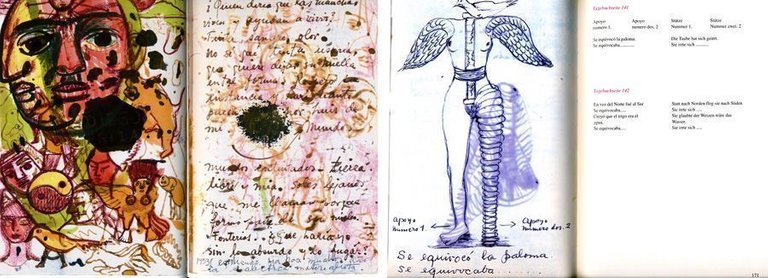 ¿Quién diría que las manchas
viven y ayudan a vivir?
Tinta, sangre, olor.
No sé qué tinta usaría
que quiere dejar su huella
en tal forma. Respeto su
instancia y haré cuanto
pueda por huir de
mi mundo
mundos entintados – tierra
libre y mía. Soles lejanos
que me llaman porque
formo parte de su núcleo.
Tonterías.. ¿Qué haría yo
sin lo absurdo y lo fugaz?
1953 entiendo ya hace muchos años
la dialéctica materialista
apoyo
número 1
Apoyo
número dos. 2
Se equivocó la paloma
Se equivocaba.....
Tagebuchseite 141
Apoyo Apoyo Stütze Stütze
número 1. número dos, 2 Nummer 1. Nummer zwei. 2
Se equivocó la paloma. Die Taube hat sich geirrt.
Se equivocaba..... Sie irrte sich ..........
Tagebuchseite 142
En vez del Norte fué al Sur Statt nach Norden flog sie nach Süden
Se equivocaba.... Sie irrte sich ....
Creyó que el trigo era el Sie glaubte der Weizen wäre das
agua. Wasser.
Se equivocaba.... Sie irrte sich ....